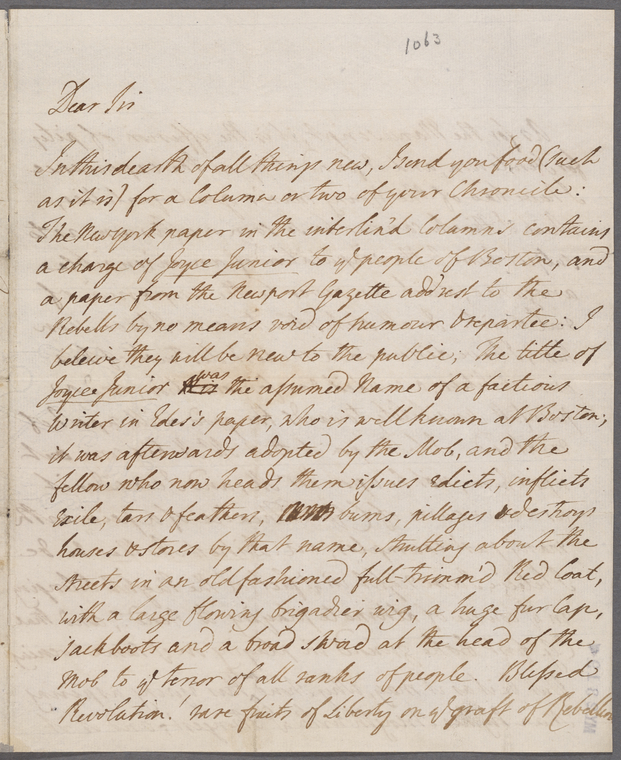 1063
Dear Sir
In this dearth of all things new, I send you food (such
as it is) for a Column or two of your Chronicle:
The New York paper in the interlin'd Columns contains
a charge of Joyce Junior to ye people of Boston, and
a paper from the Newport Gazette addrest to the
Rebells by no means void of humour & repartee: I
beleive they will be new to the public; The title of
Joyce Junior was the assumed Name of a factious
Writer in Edes's paper, who is well known at Boston;
it was afterwards adopted by the Mob, and the
fellow who now heads them issues edicts, inflicts
Exile, tars & feathers, burns, pillages & destroys
houses & stores by that name, strutting about the
streets in an old fashioned full-trimm'd Red Coat,
with a large flowing brigadier wig, a huge fur Cap,
Jackboots and a broad sword at the head of the
Mob to ye terror of all ranks of people. Blessed
Revolution! rare fruits of Liberty on ye graft of Rebellion